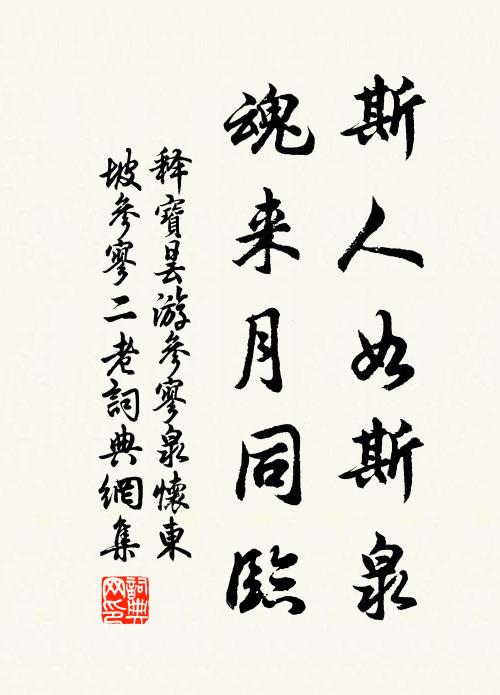 斯人如斯泉
魂来月同臨
释寶曇游參寥泉懷東
坡參寥二老詞典網集
詞典网印